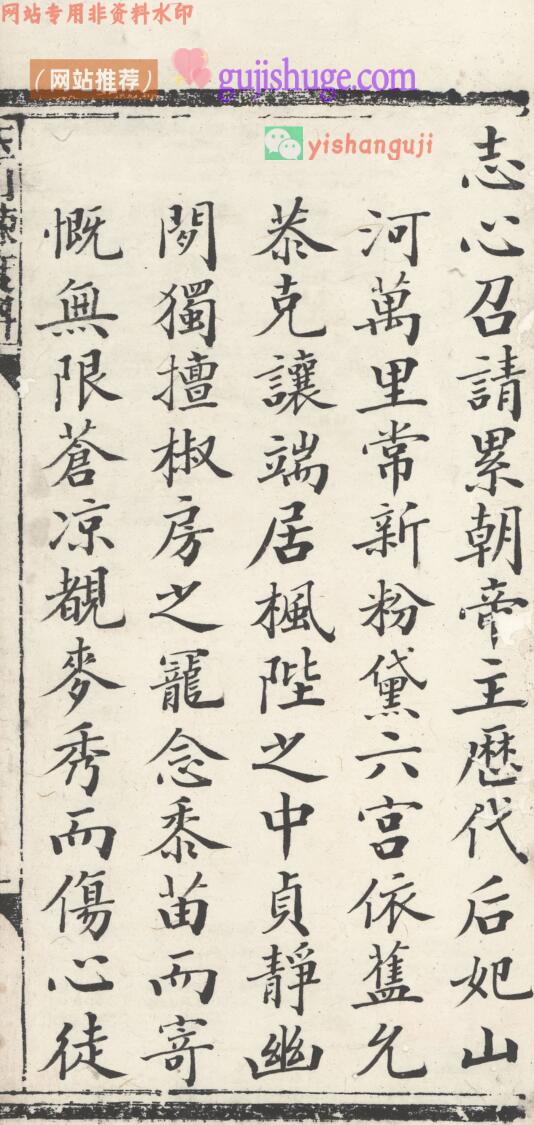 网站专用非资料水印
(网站推荐) gujishuge.com
yishanguji
志心召請累朝帝主歷代后妃山
河萬里常新粉黛六宮依舊允
恭克讓端居楓陛之中貞靜幽
閒獨擅椒房之寵念黍苗而寄
慨無限蒼凉覩麥秀而傷心徒